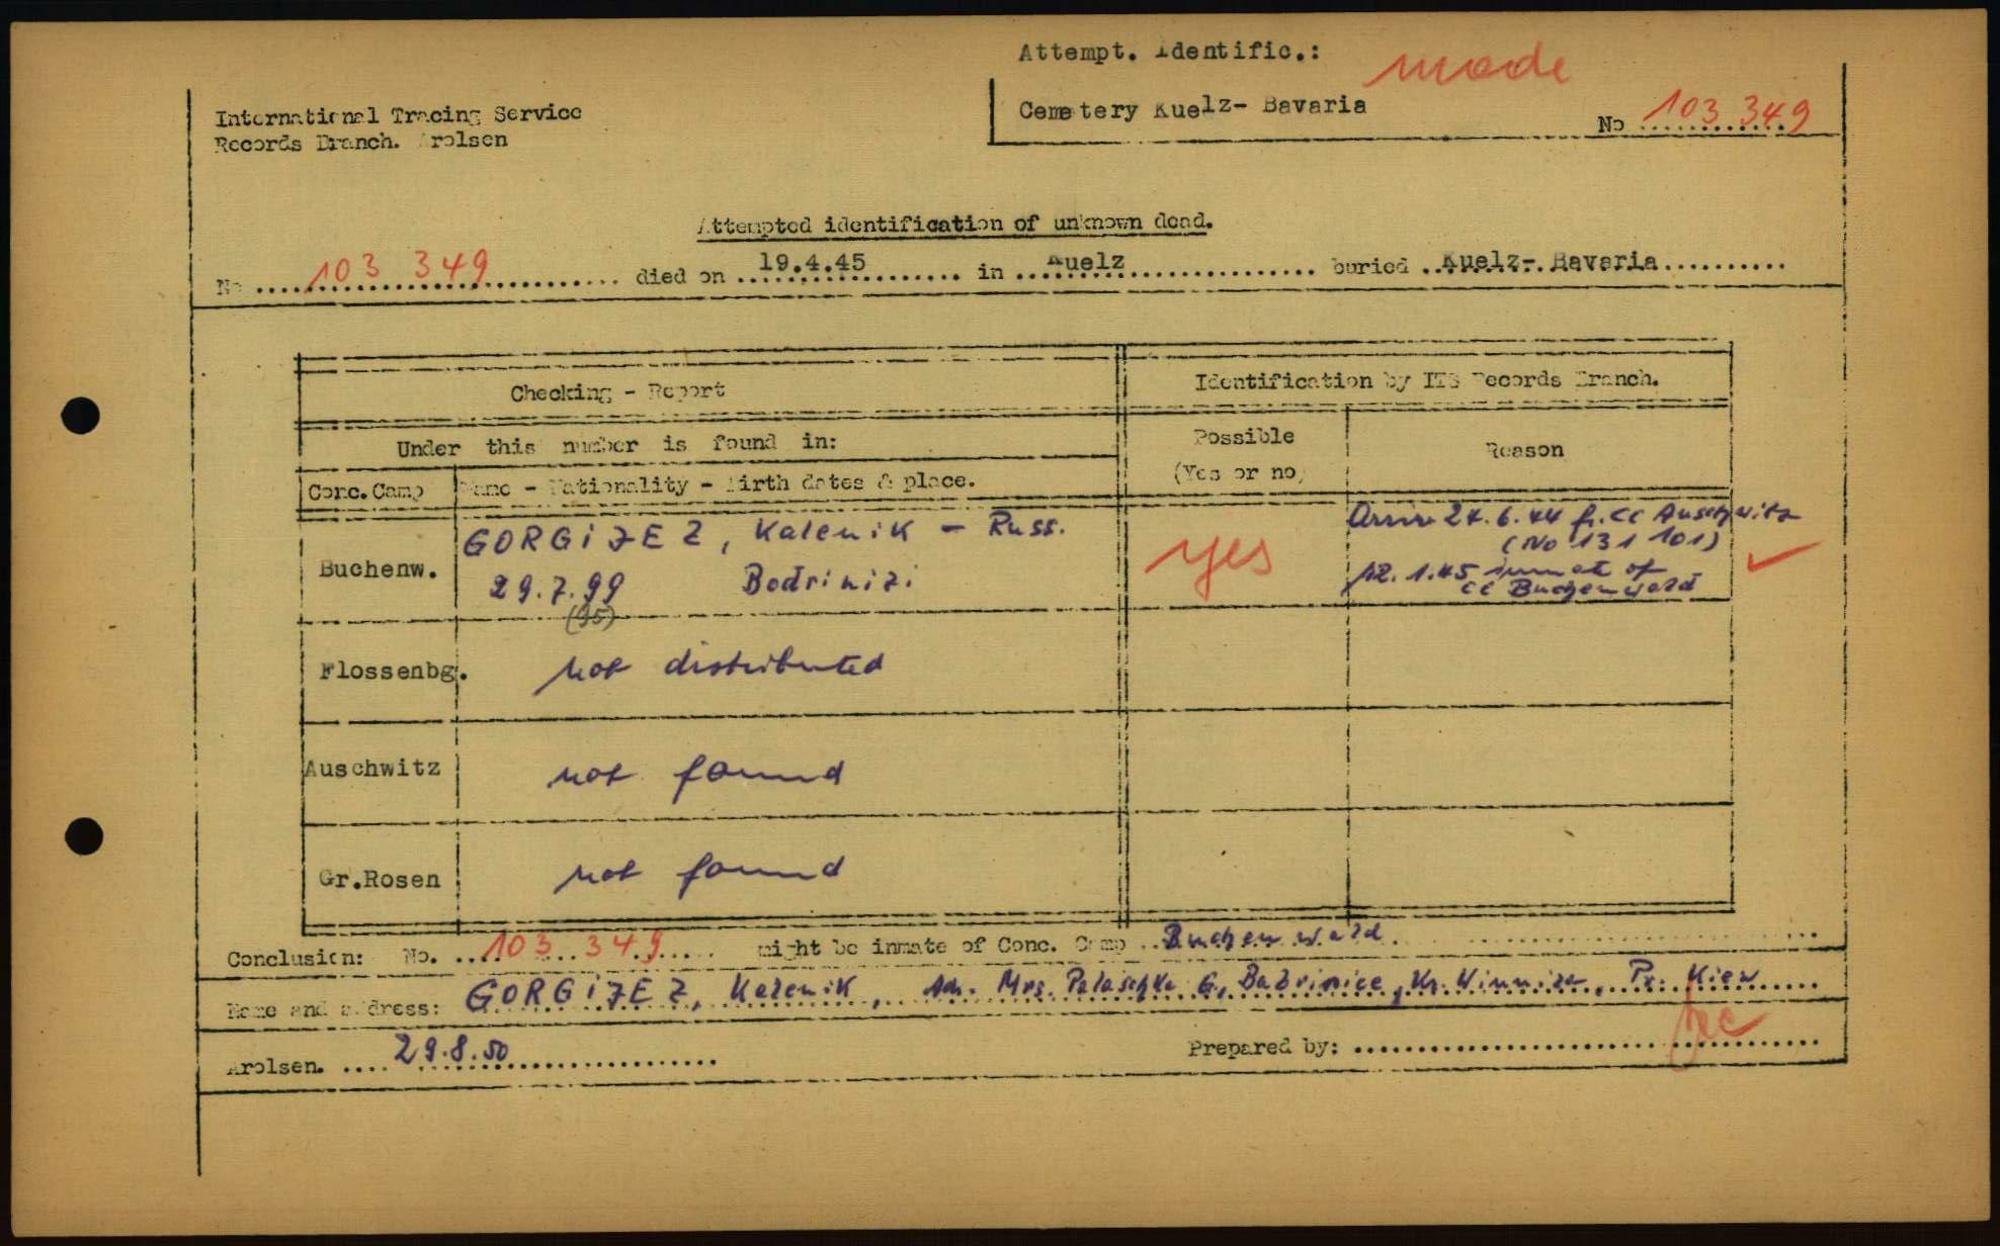 Attempt. Identific.: made
Cemetery Kuelz- Bavaria
No 103 349
International Tracing Service
Records Branch. Arolsen
Attempted identification of unknown dead.
No 103 349 died on 19.4.45 in Kuelz buried Kuelz- Bavaria
Checking - Report
Identification by ITS Records Branch.
Under this number is found in:
Possible
(Yes or no)
Reason
Conc. Camp
Name - Nationality - Birth dates & place.
Buchenw.
GORGIJEZ, Kalenik - Russ.
29.7.99 Bodrinizi
(95)
yes
Arriv 24.6.44 fr. CC Auschwitz
(No 131 101)
12.1.45 inmate of
CC Buchenwald
Flossenbg. not distributed
Auschwitz not found
Gr.Rosen not found
Conclusion: No. 103 349 might be inmate of Conc. Camp Buchenwald
Name and address: GORGIJEZ, Kalenik, Adr. Mrs. Palaschka G., Badrinice, Kr. Winniza, Pr. Kiew
Arolsen. 29.8.50
Prepared by: